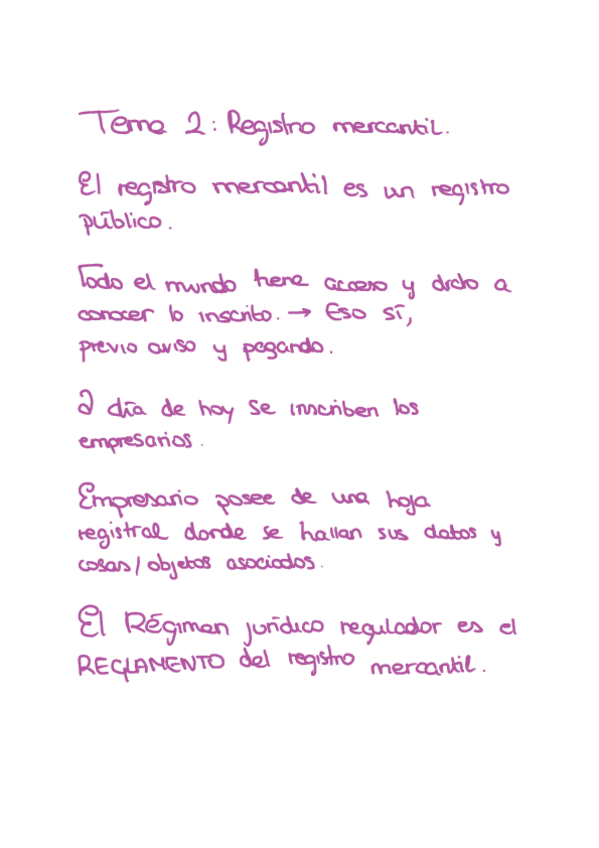 Tema 2: Registro mercantil.
El registro mercantil es un registro
público.
Todo el mundo tiene acceso y drcho a
conocer lo inscrito. → Eso sí,
previo aviso y pagando.
A día de hoy se inscriben los
empresarios.
Empresario posee de una hoja
registral donde se hallan sus datos y
cosas/objetos asociados.
El Régimen jurídico regulador es el
REGLAMENTO del registro mercantil.